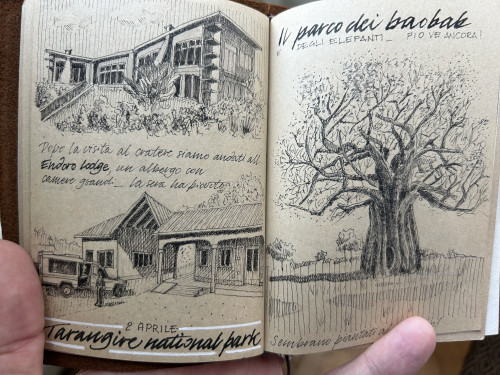 Dopo la visita al cratere siamo andati all'
Endoro Lodge, un albergo con
camere grandi_ la sera ha piovuto
2 APRILE_
Tarangire national park
Il parco dei baobab
E DEGLI ELEFANTI_ PIOVE ANCORA!
Sembrano piantati a